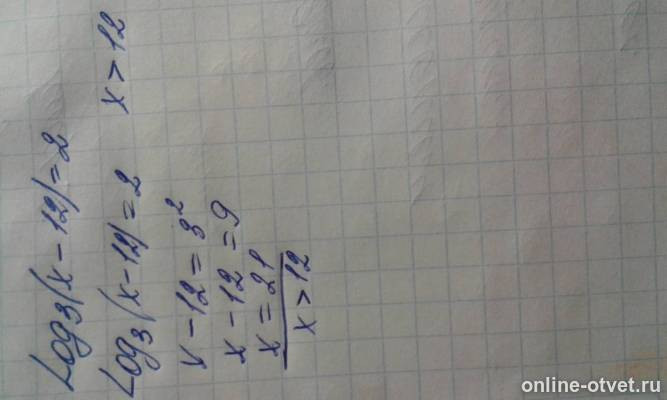 Log₃(x-12)=2
Log₃(x-12)=2 x>12
x-12=3²
x-12=9
x=21
x>12
online-otvet.ru